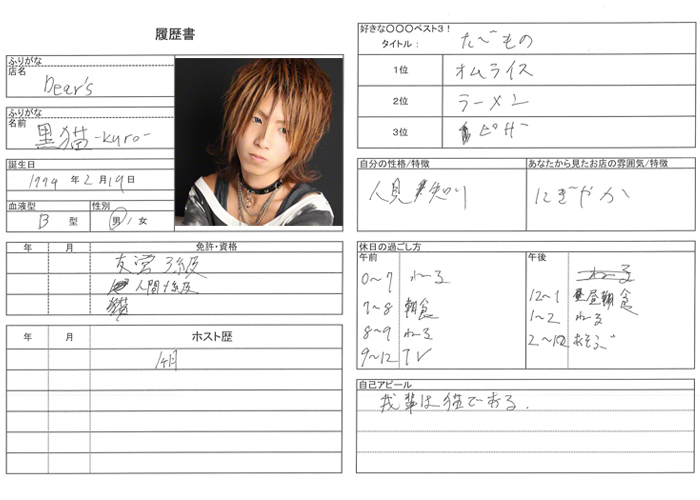 履歴書
ふりがな
店名
Dear's
ふりがな
名前
黒猫-kuro-
誕生日
1994 年 2 月 19 日
血液型
性別
B 型
男 / 女
年 月 免許・資格
友営 3級
人間 1級
猫
年 月 ホスト歴
1ヶ月
好きな〇〇〇ベスト3!
タイトル: たべもの
1位 オムライス
2位 ラーメン
3位 ピザ
自分の性格/特徴
人見知り
あなたから見たお店の雰囲気/特徴
にぎやか
休日の過ごし方
午前
0〜7 ねーる
7〜8 朝食
8〜9 ねる
9〜12 TV
午後
ねーる
12〜1 昼食
1〜2 ねーる
2〜12 あそぶ
自己アピール
我輩は猫である.